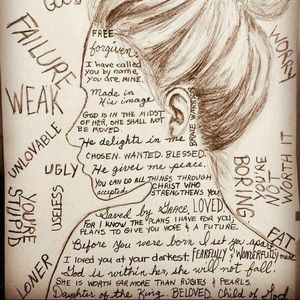 GOOD
FAILURE
WEAK
UNLOVABLE
UGLY
USELESS
YOU'RE STUPID
LONER
FREE
forgiven,
I have called
you by name,
you are mine.
Made in
His image
GOD IS IN THE MIDST
OF HER, SHE SHALL NOT
BE MOVED.
He delights in me
CHOSEN. WANTED. BLESSED.
He gives me peace.
YOU CAN DO ALL THINGS THROUGH
accepted. CHRIST WHO
STRENGTHENS YOU
Saved by GRACE, LOVED
FOR I KNOW THE PLANS I HAVE FOR YOU,
PLANS TO GIVE YOU HOPE & A FUTURE.
Before you were born I set you apart
I loved you at your darkest. FEARFULLY & WONDERFULLY made
God is within her, she will not fall.
SHE IS WORTH FAR MORE THAN RUBIES & PEARLS.
Daughter of the King BELOVED child of God
WORRY
YOU'RE NOT
WORTH IT
BORING
FAT